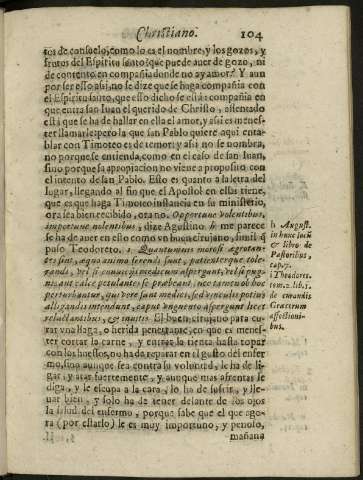 Christiano. 104
tos de consuelo, como lo es el nombre, y los gozos, y
frutos del Espiritu santo: que puede auer de gozo, ni
de contento en compañia donde no ay amor? Y aun
por ser esto assi, no se dize que se haga compañia con
el Espiritu santo, que esso dicho se està: compañia en
que entra san Iuan el querido de Christo, ostentado
està que se ha de hallar en ella el amor, y assi es menes-
ter llamarle: pero la que san Pablo quiere aqui enta-
blar con Timoteo es de temor: y assi no se nombra,
no porque se entienda, como en el caso de san Iuan,
sino porque su apropiacion no viene a proposito con
el intento de san Pablo. Esto es quanto a la letra del
lugar, llegando al fin que el Apostol en esso tiene,
que es que haga Timoteo instancia en su ministerio,
ora sea bien recibido, ora no. Opportune volentibus,
importune nolentibus, dize Agustino. h me parece
se ha de auer en esto como vn buen cirujano, simil q̃
puso Teodoreto. i Quantumuis molesti ægroten-
tes sint, æquo animo ferendi sunt, patienterque tole-
randi, vel si conuicijs medicum aspergunt, vel si pug-
nis aut calce petulantes se præbeant, nec tamen ob hoc
perturbantur, qui vere sunt medici, sed vinculis potius
alligandis intendunt, caput vnguento aspergunt licet
reluctantibus, & inuitis. El buen cirujano para cu-
rar vna llaga, o herida penetrante, en que es menes-
ter cortar la carne, y entrar la tienta hasta topar
con los huessos, no ha de reparar en el gusto del enfer
mo, sino aunque sea contra su voluntad, le ha de li-
gar, y atar fuertemente, y aunque mas afrentas le
diga, y le escupa a la cara, lo ha de sufrir, y lle-
uar bien, y solo ha de tener delante de los ojos
la salud del enfermo, porque sabe que el que ago-
ra (por estarlo) le es muy importuno, y penoso,
mañana
h August.
in hunc locũ
& libro de
Pastoribus,
cap.7.
i Theodoret.
tom.2.lib.1.
de curandis
Græcorum
affectioni-
bus.